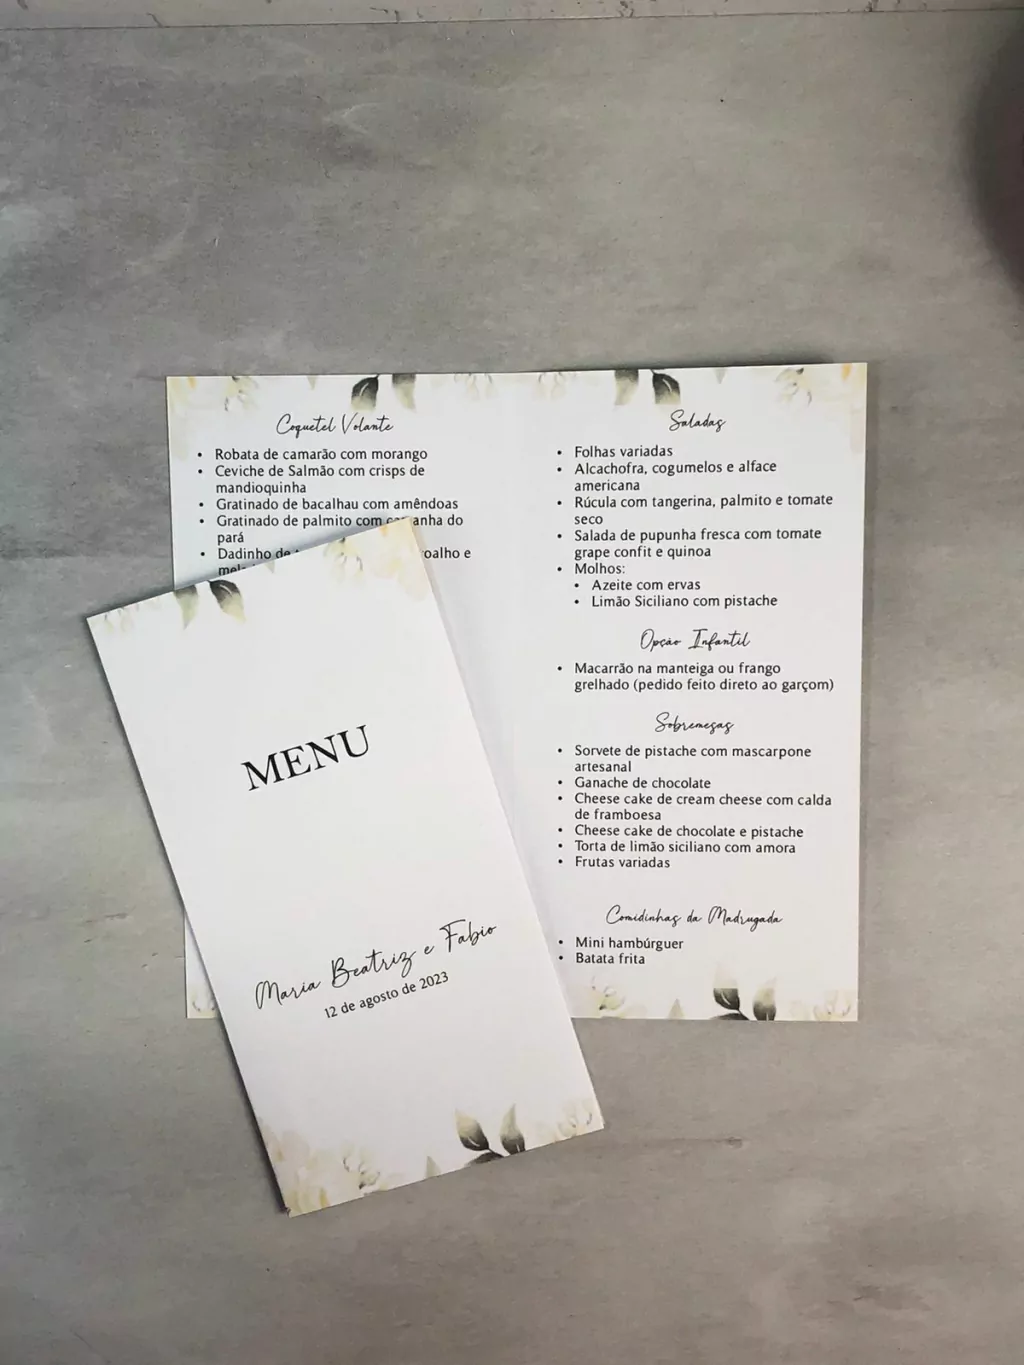 Coquetel Volante
• Robata de camarão com morango
• Ceviche de Salmão com crisps de
mandioquinha
• Gratinado de bacalhau com amêndoas
• Gratinado de palmito com do
pará
• Dadinho de e
Saladas
• Folhas variadas
• Alcachofra, cogumelos e alface
americana
• Rúcula com tangerina, palmito e tomate
seco
• Salada de pupunha fresca com tomate
grape confit e quinoa
• Molhos:
• Azeite com ervas
• Limão Siciliano com pistache
Opção Infantil
• Macarrão na manteiga ou frango
grelhado (pedido feito direto ao garçom)
Sobremesas
• Sorvete de pistache com mascarpone
artesanal
• Ganache de chocolate
• Cheese cake de cream cheese com calda
de framboesa
• Cheese cake de chocolate e pistache
• Torta de limão siciliano com amora
• Frutas variadas
Comidinhas da Madrugada
• Mini hambúrguer
• Batata frita
MENU
Maria Beatriz e Fabio
12 de agosto de 2023